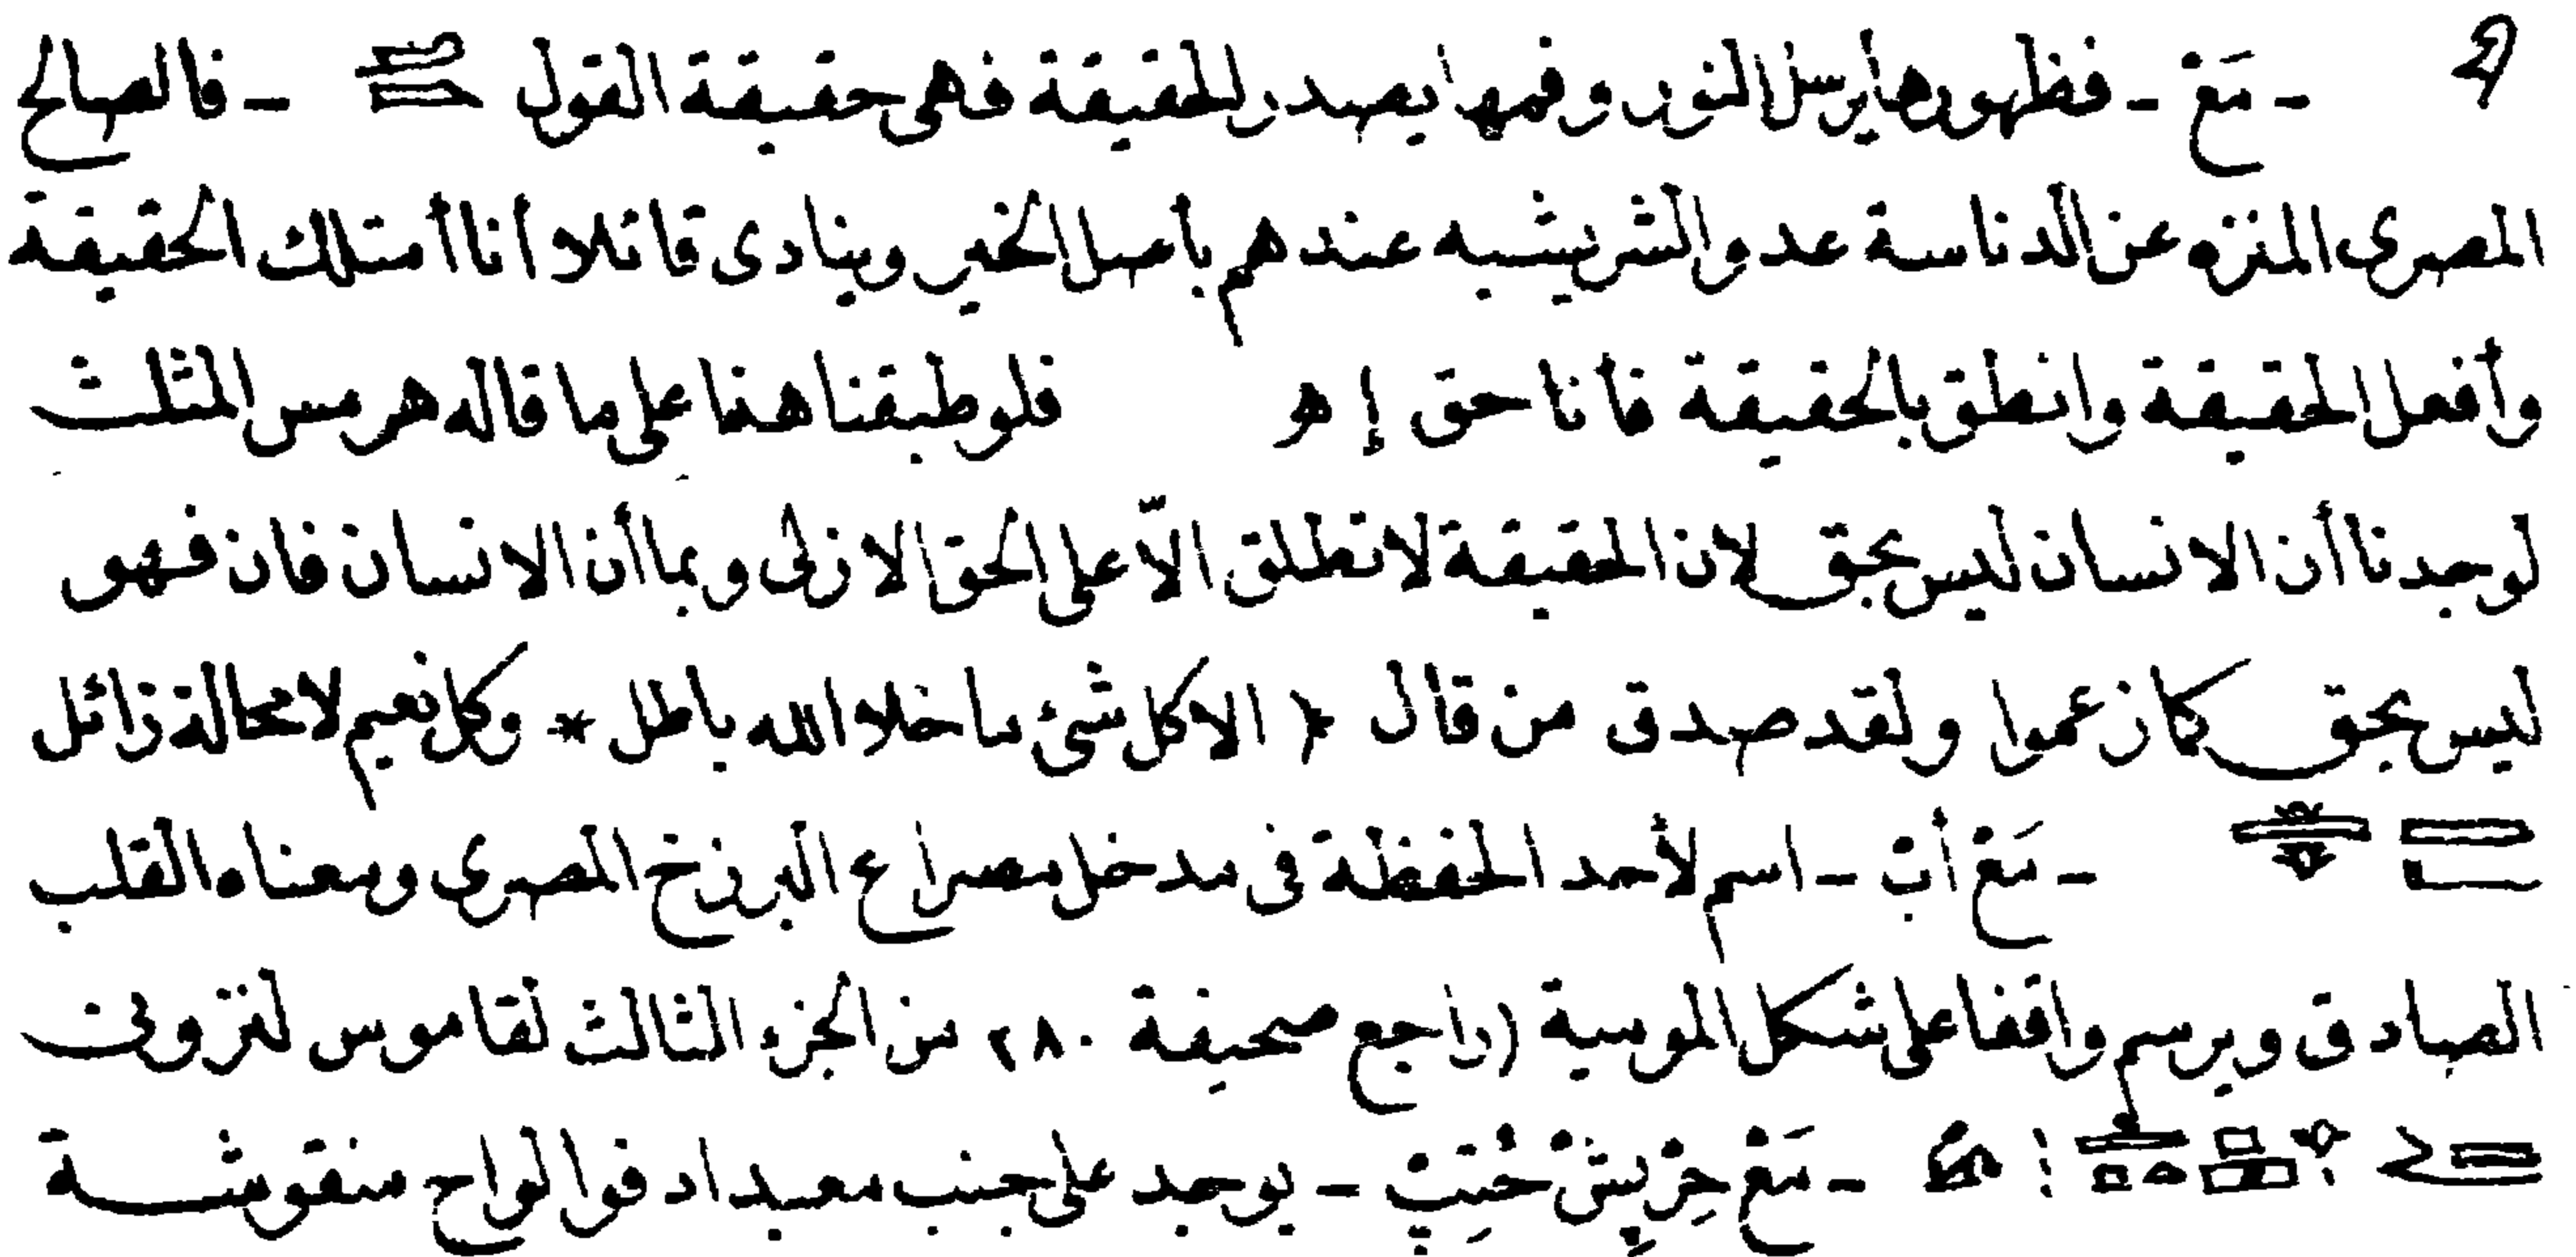 - مَعْ - فظهورها يرسل النور وفمها يصدر الحقيقة فهى حقيقة القول - فالصالح
المصرى المنزه عن الدناسة عدو الشر يشبه عندهم بأصل الخير وينادى قائلا أنا أمتلك الحقيقة
وأفعل الحقيقة وانطق بالحقيقة فأنا حق إ ه فلو طبقنا هذا على ما قاله هرمس المثلث
لوجدنا أن الانسان ليس بحق لان الحقيقة لا تطلق الاّ على الحق الازلى وبما أن الانسان فان فهو
ليس بحق كما زعموا ولقد صدق من قال * الا كل شئ ما خلا الله باطل * وكل نعيم لا محالة زائل
- مَعْ أبْ - اسم لأحد الحفظة فى مدخل مصراع البرزخ المصرى ومعناه القلب
الصادق ويرسم واقفا على شكل الموسية (راجع صحيفة ٢٨٠ من الجزء الثالث لقاموس لنزونى
- مَعْ حِرْ بِشْ حُتِبْ - يوجد على جنب معبد ادفو الواح منقوشة